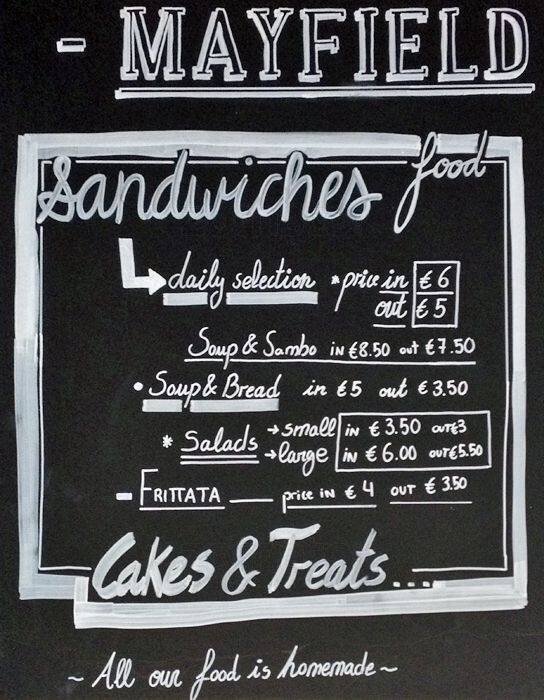 - MAYFIELD
food
Sandwiches
daily selection * price in € 6
out € 5
Soup & Sambo in €8.50 out €7.50
• Soup & Bread in €5 out €3.50
* Salads → small in € 3.50 out €3
→ large in € 6.00 out €5.50
- FRITTATA — price in € 4 out € 3.50
Cakes & Treats...
~ All our food is homemade ~